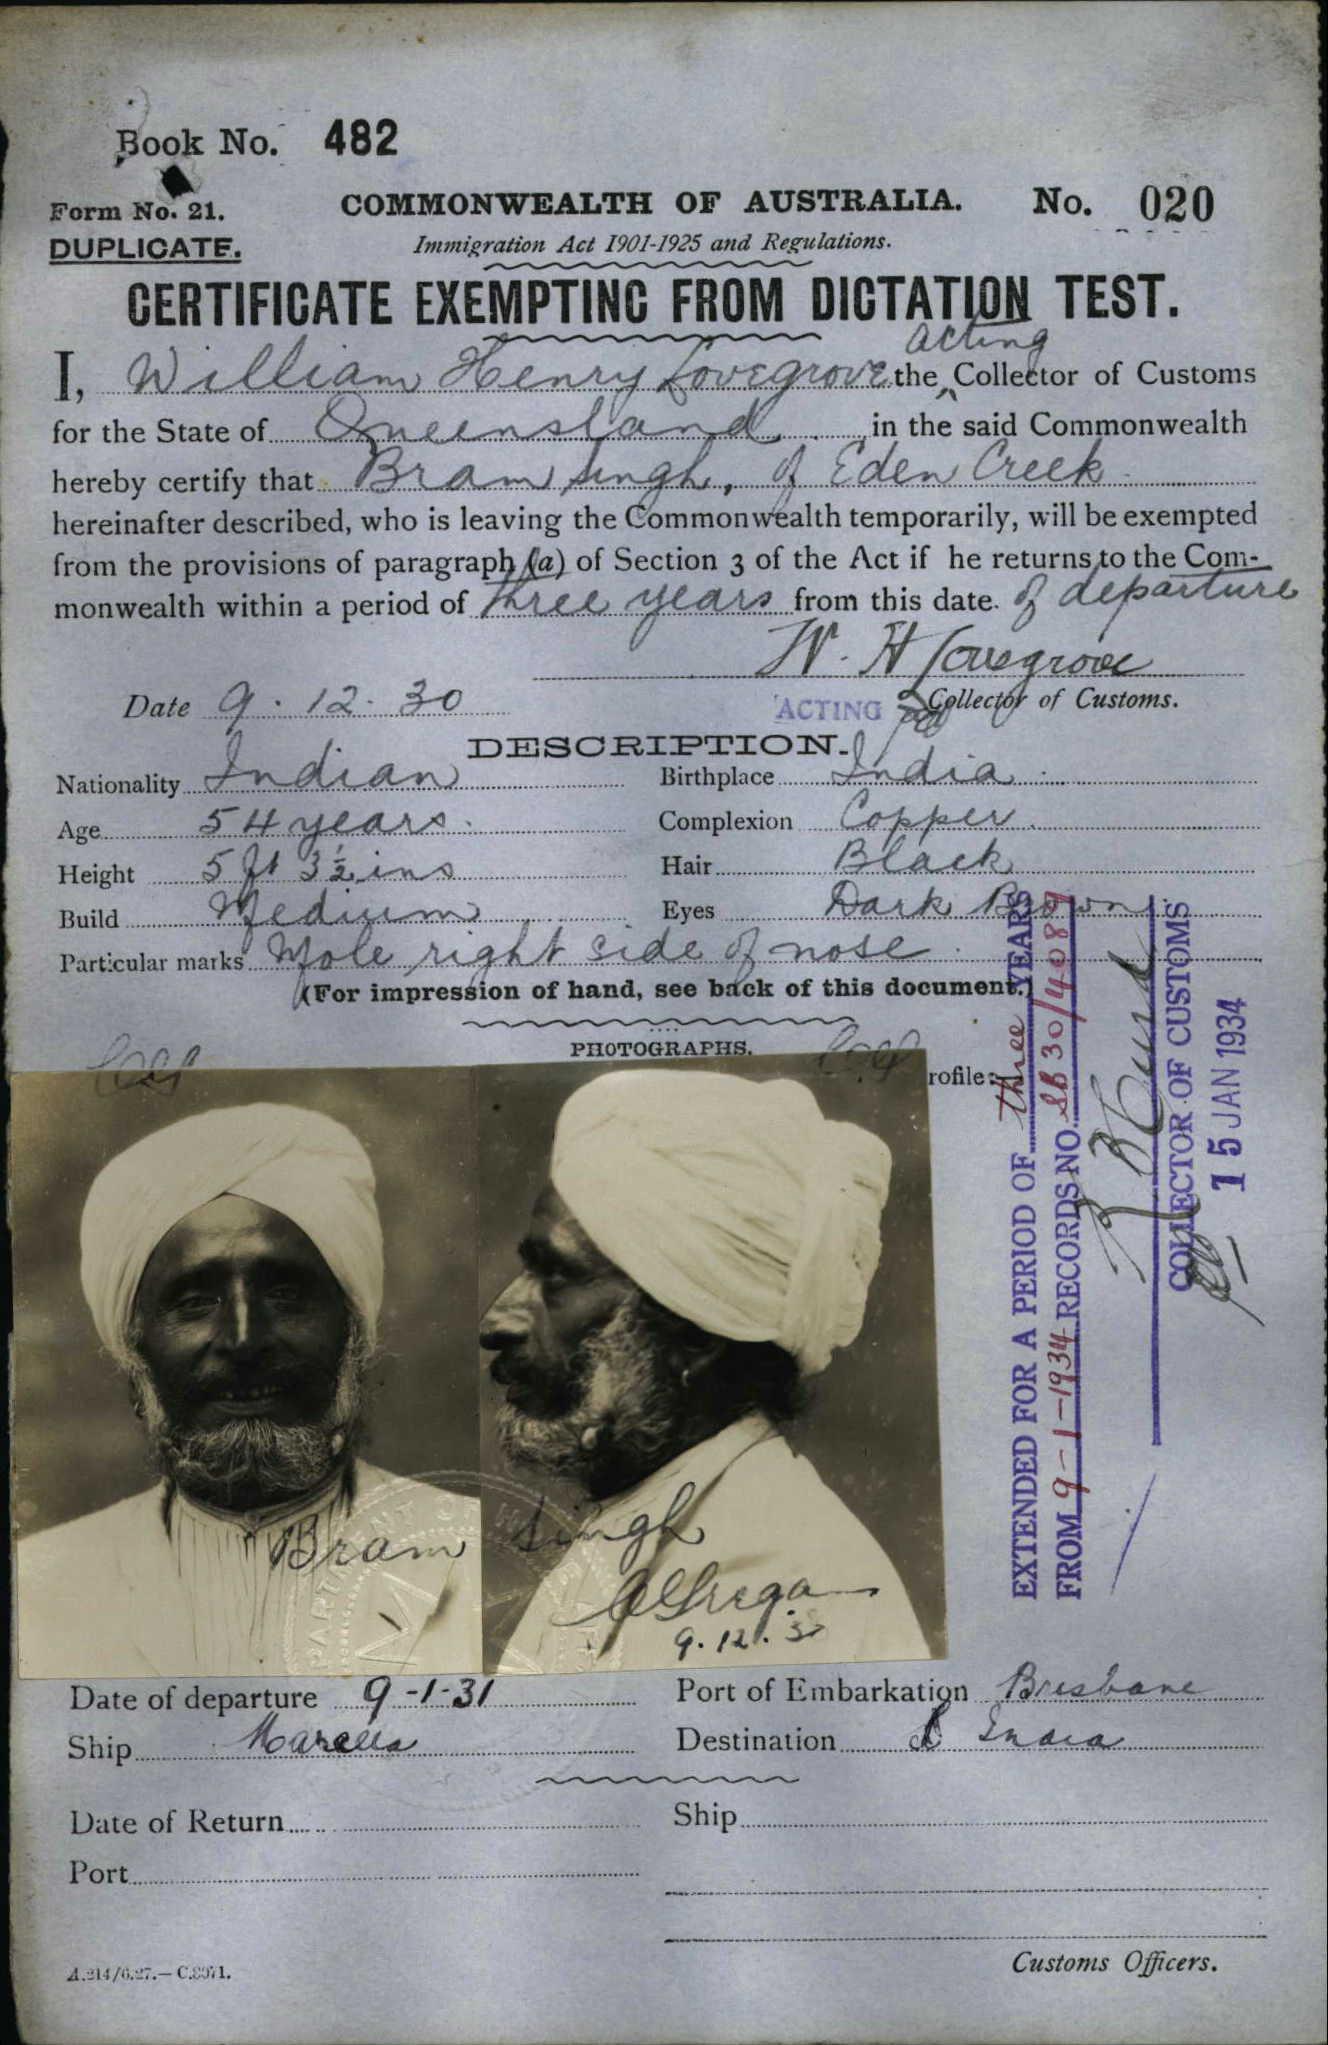 Book No. 482
Form No. 21.
COMMONWEALTH OF AUSTRALIA.
No. 020
DUPLICATE.
Immigration Act 1901-1925 and Regulations.
CERTIFICATE EXEMPTING FROM DICTATION TEST.
acting
I, William Henry Lovegrove the Collector of Customs
for the State of Queensland in the said Commonwealth
hereby certify that Bram Singh, of Eden Creek
hereinafter described, who is leaving the Commonwealth temporarily, will be exempted
from the provisions of paragraph (a) of Section 3 of the Act if he returns to the Com-
monwealth within a period of three years from this date of departure
W. H. Lovegrove
Date 9.12.30
ACTING Collector of Customs.
DESCRIPTION.
Nationality Indian
Birthplace India
Age 54 years.
Complexion Copper.
Height 5 ft 3½ ins
Hair Black
Build Medium
Eyes Dark Brown
Particular marks Mole right side of nose
(For impression of hand, see back of this document.)
PHOTOGRAPHS.
rofile:
EXTENDED FOR A PERIOD OF three YEARS
FROM 9-1-1934 RECORDS NO. SB30/4089
COLLECTOR OF CUSTOMS
15 JAN 1934
Bram Singh
9.12.30
Date of departure 9-1-31
Port of Embarkation Brisbane
Ship Marella
Destination India
Date of Return
Ship
Port
Customs Officers.
A.214/6.27.—C.8071.